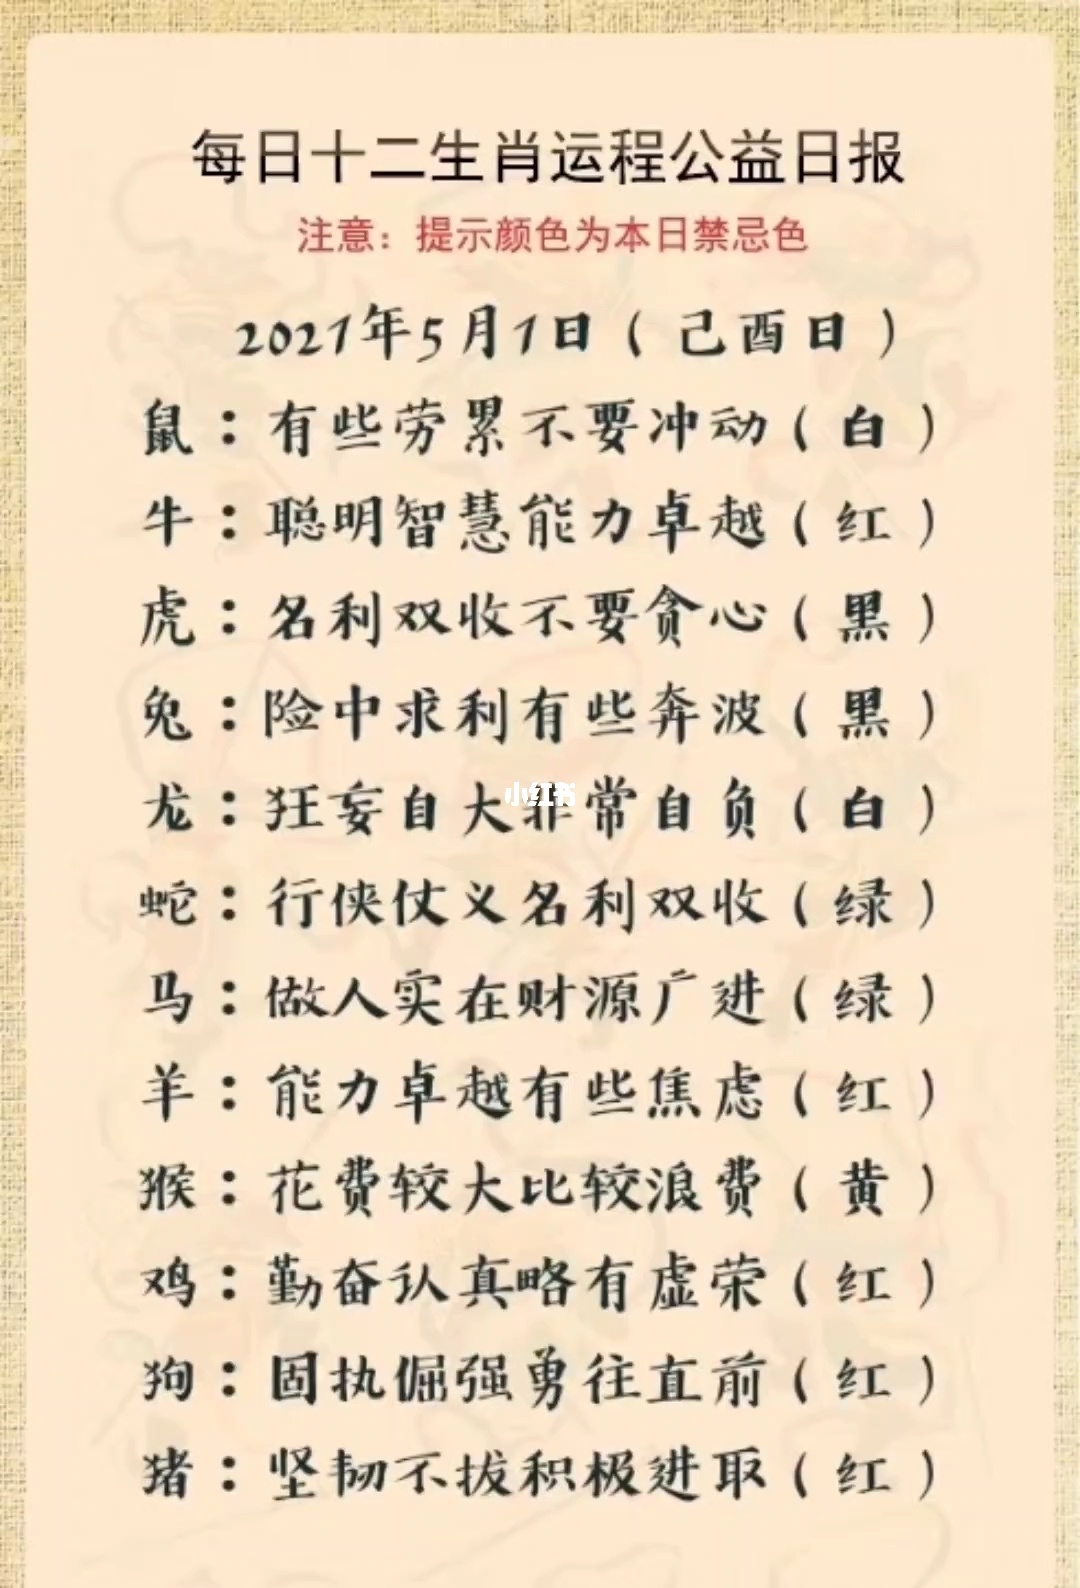 每日十二生肖运程公益日报
注意：提示颜色为本日禁忌色
2021年5月1日（己酉日）
鼠：有些劳累不要冲动（白）
牛：聪明智慧能力卓越（红）
虎：名利双收不要贪心（黑）
兔：险中求利有些奔波（黑）
龙：狂妄自大非常自负（白）
小红书
蛇：行侠仗义名利双收（绿）
马：做人实在财源广进（绿）
羊：能力卓越有些焦虑（红）
猴：花费较大比较浪费（黄）
鸡：勤奋认真略有虚荣（红）
狗：固执倔强勇往直前（红）
猪：坚韧不拔积极进取（红）